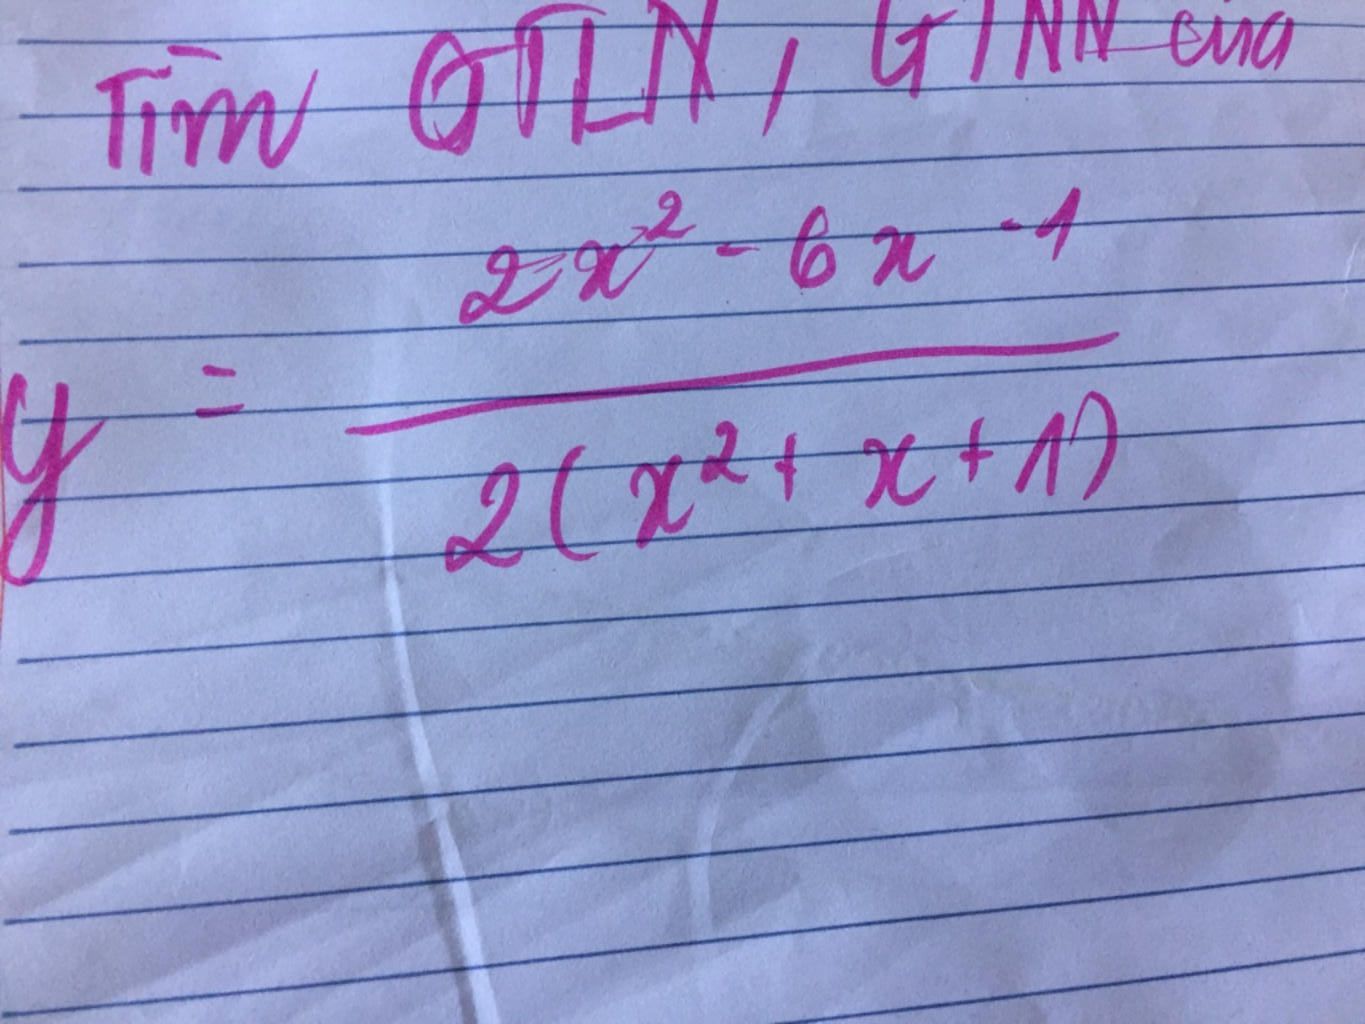 Tìm GTLN, GTNN của
y = \frac{2x^2 - 6x - 1}{2(x^2 + x + 1)}